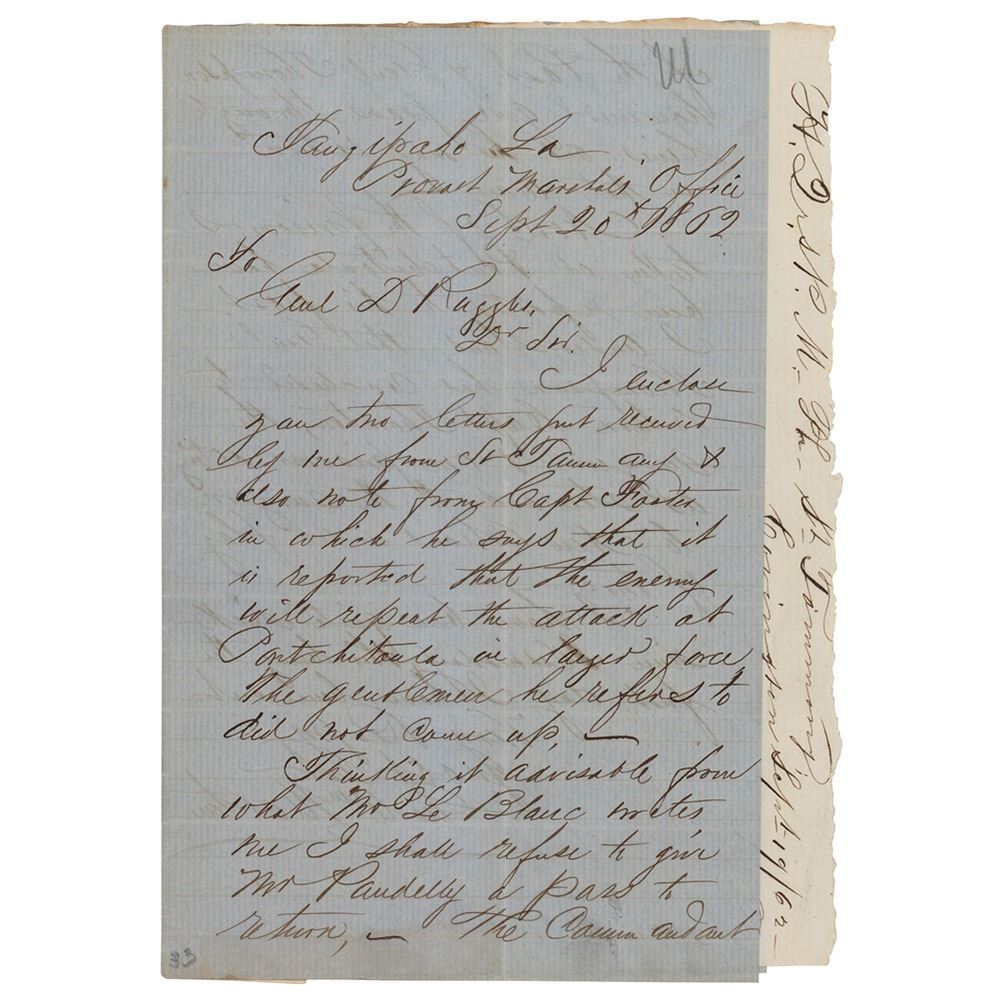 Tangipaho La
Provost Marshals Office
Sept 20th 1862
To
Genl D Ruggles,
Dr Sir.
I enclose
you two letters just received
by me from St Tammany &
also note from Capt Foster
in which he says that it
is reported that the enemy
will repeat the attack at
Pontchitoula in larger force,
The gentlemen he refers to
did not come up, —
Thinking it advisable from
what Mr Le Blanc writes
me I shall refuse to give
Mr Pandelly a pass to
return, — The Commandant
33
St. Tammany
Covington Sept 19/62 —